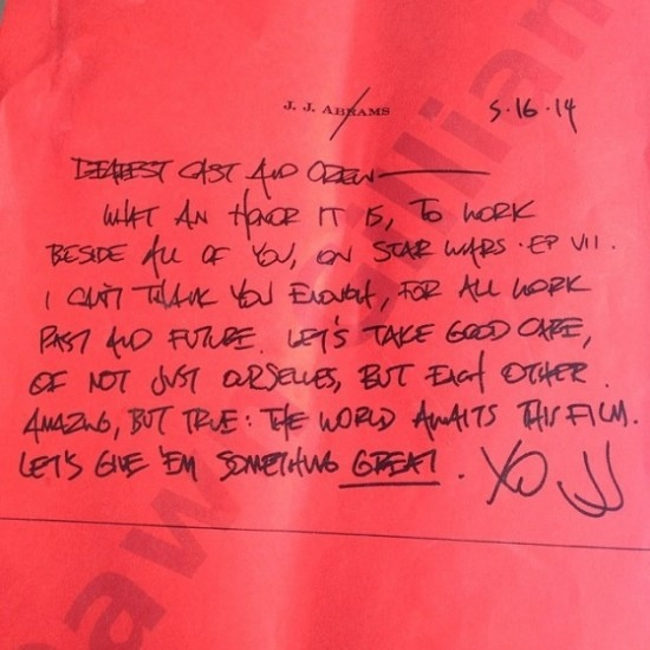 J. J. ABRAMS
5·16·14
DEAREST CAST AND CREW —
WHAT AN HONOR IT IS, TO WORK
BESIDE ALL OF YOU, ON STAR WARS · EP VII.
I CAN'T THANK YOU ENOUGH, FOR ALL WORK
PAST AND FUTURE. LET'S TAKE GOOD CARE,
OF NOT JUST OURSELVES, BUT EACH OTHER.
AMAZING, BUT TRUE: THE WORLD AWAITS THIS FILM.
LET'S GIVE 'EM SOMETHING GREAT. XO JJ